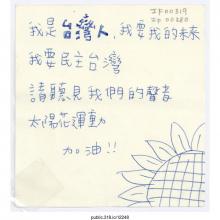 我是台灣人,我要我的未來
IF00319
我要民主台灣
請聽見我們的聲音
太陽花運動
加油!!
public.318.io/12249